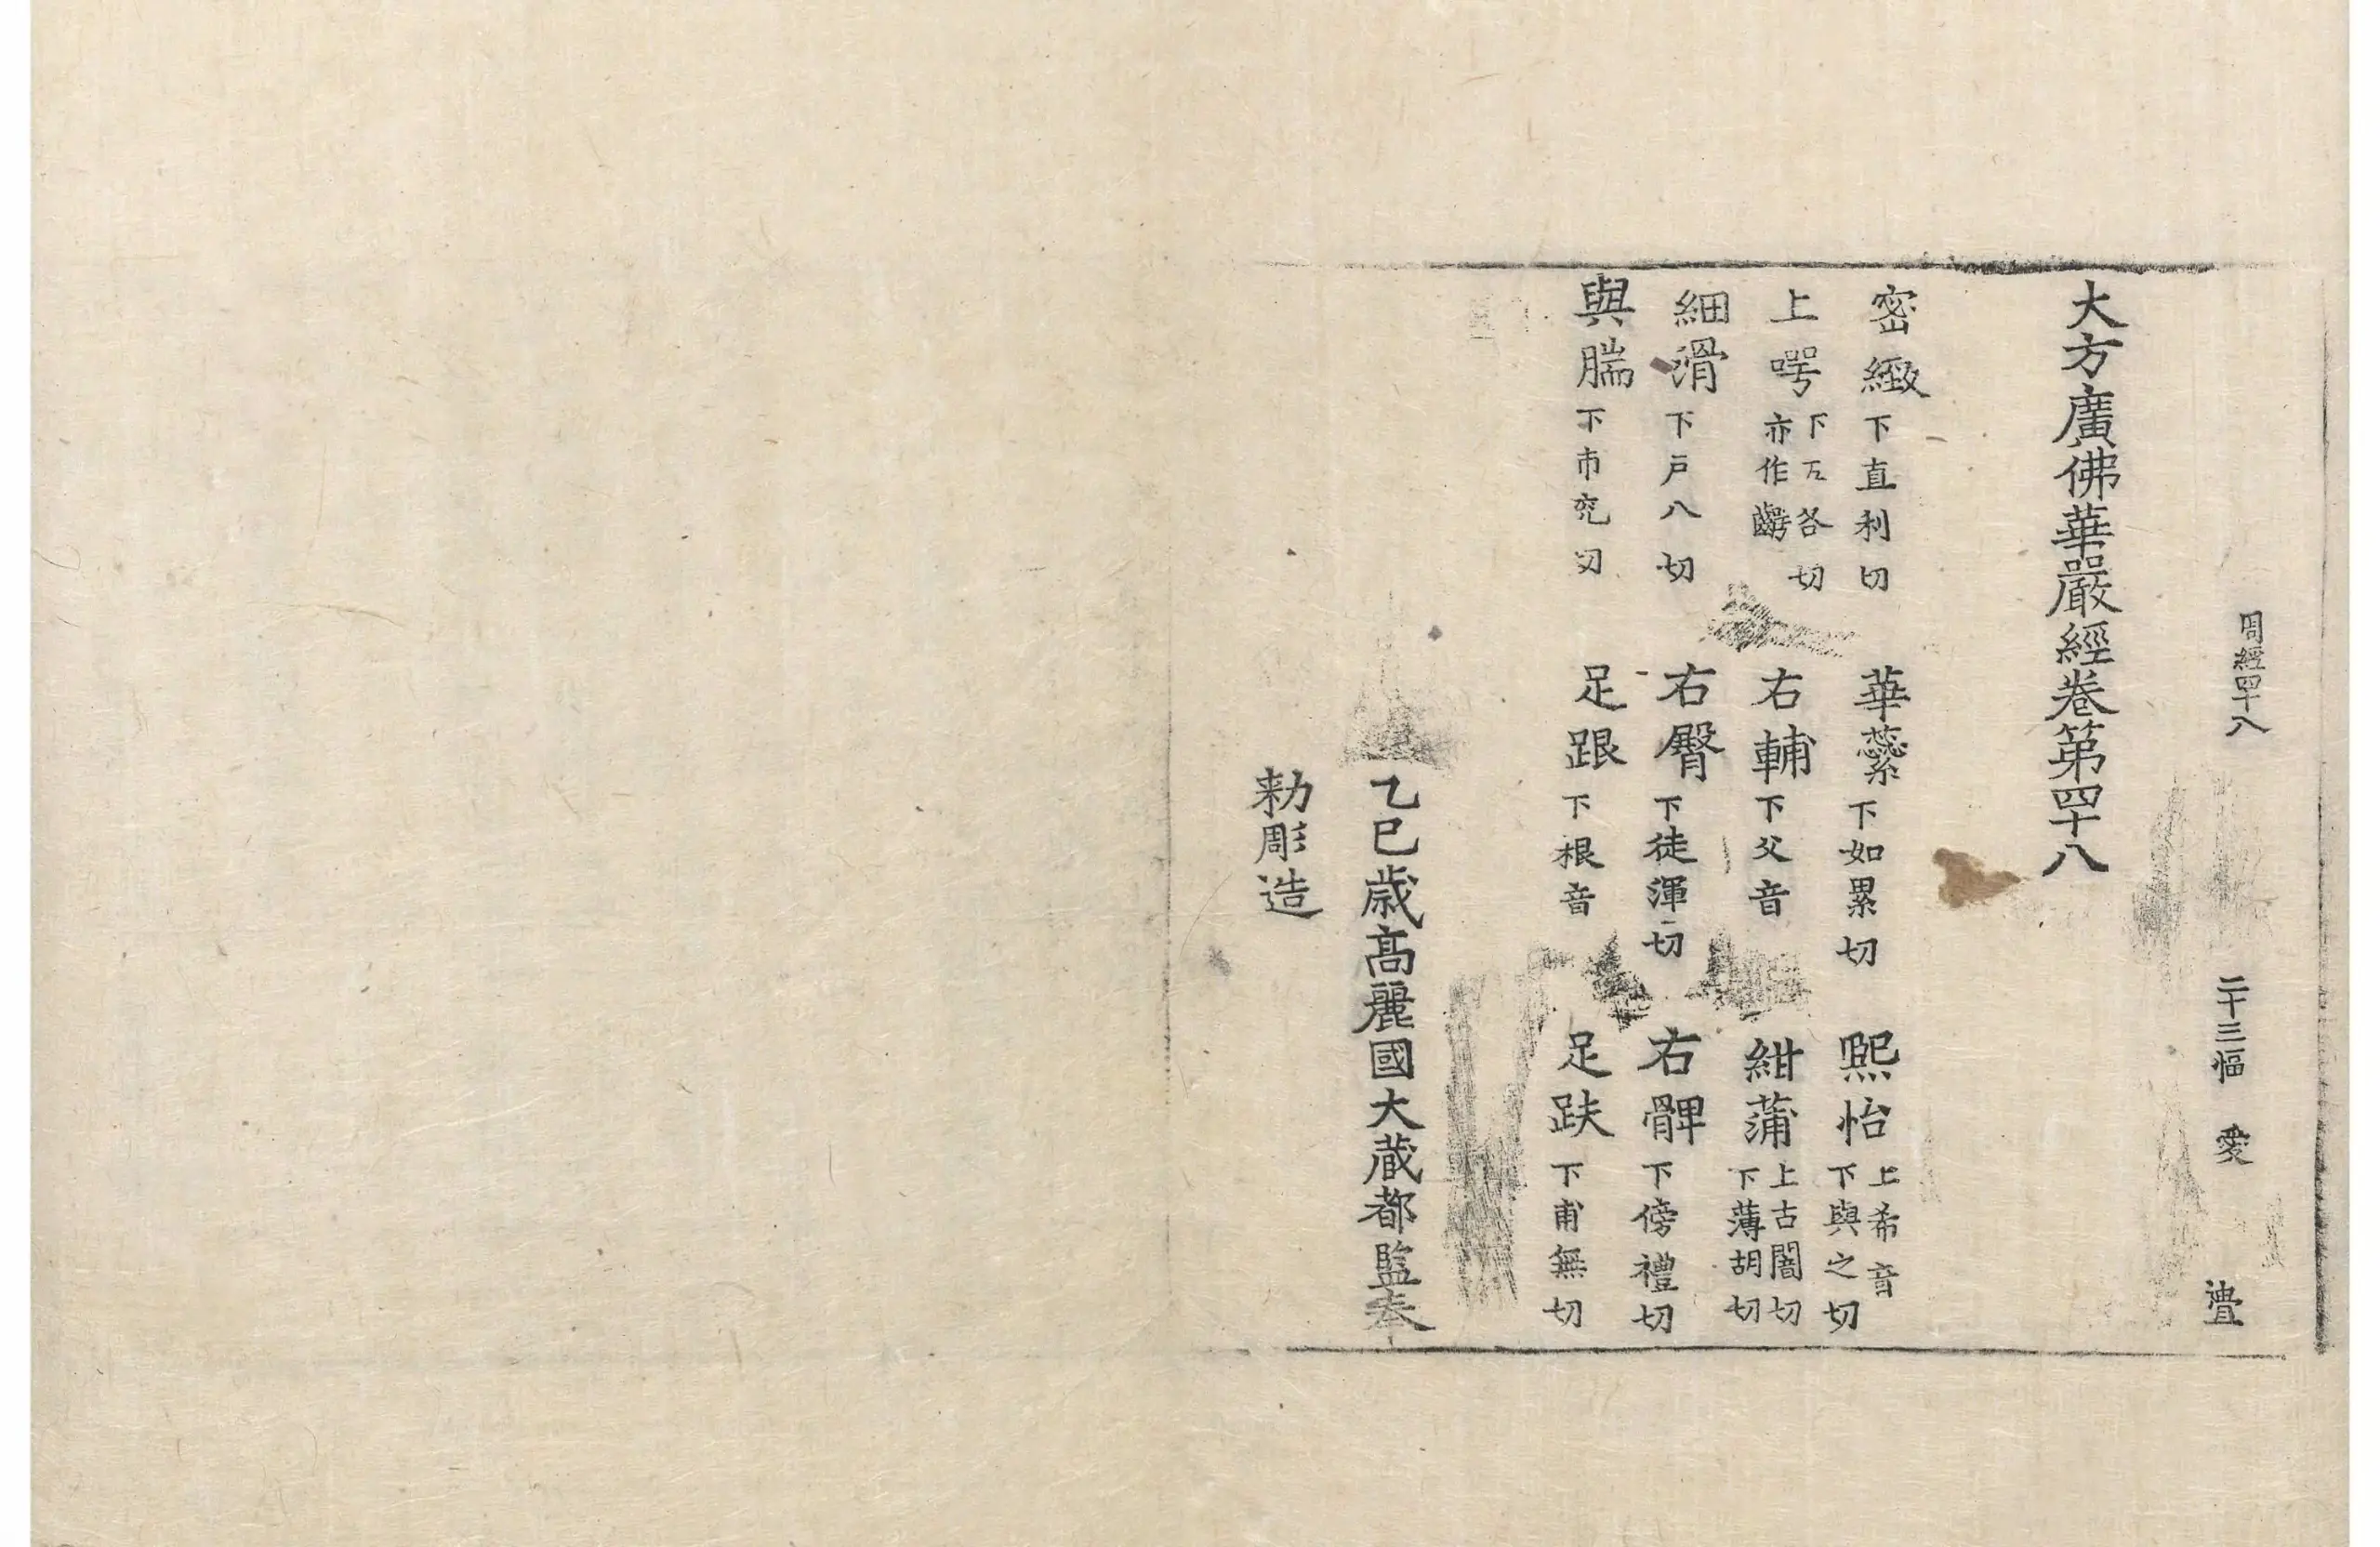 周經四十八 二十三幅 愛 禮
大方廣佛華嚴經卷第四十八
密緻下直利切 華蘂下如累切 熙怡上希音下與之切
上㗁下五各切亦作齶 右輔下父音 紺蒲上古闇切下薄胡切
細滑下戸八切 右臀下徒渾切 右髀下傍禮切
與腨下市兖切 足跟下根音 足趺下甫無切
乙巳歲高麗國大藏都監奉
勑彫造